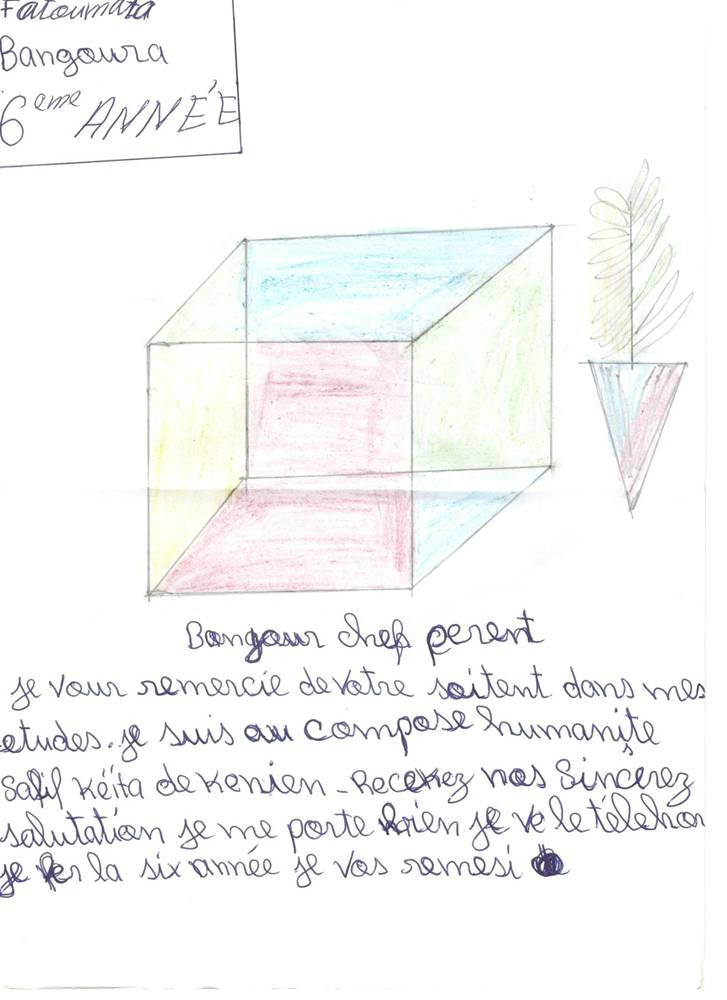 Fatoumata
Bangoura
6eme ANNÉE
Bongour chef perent
je vour remercie de votre soitent dans mes
etudes. je suis au compose humanite
Salif Kéita de Kenien - Recevez nos Sincerez
salutation je me porte bien je ve le télehon
je fer la six année je vos remesi